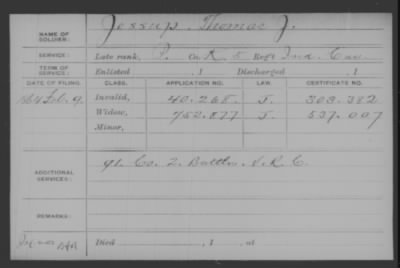 NAME OF SOLDIER: Jessup, Thomas J.
SERVICE: Late rank, P. Co. K, 5 Reg't Ind. Cav.
TERM OF SERVICE: Enlisted , 1 Discharged , 1
DATE OF FILING. CLASS. APPLICATION NO. LAW. CERTIFICATE NO.
Feb. 9. Invalid, 40.268. J. 303.382
Widow, 752.877 J. 537.007
Minor,
ADDITIONAL SERVICES: 91. Co. 2. Battln. V.R.C.
REMARKS:
Died , 1 , at